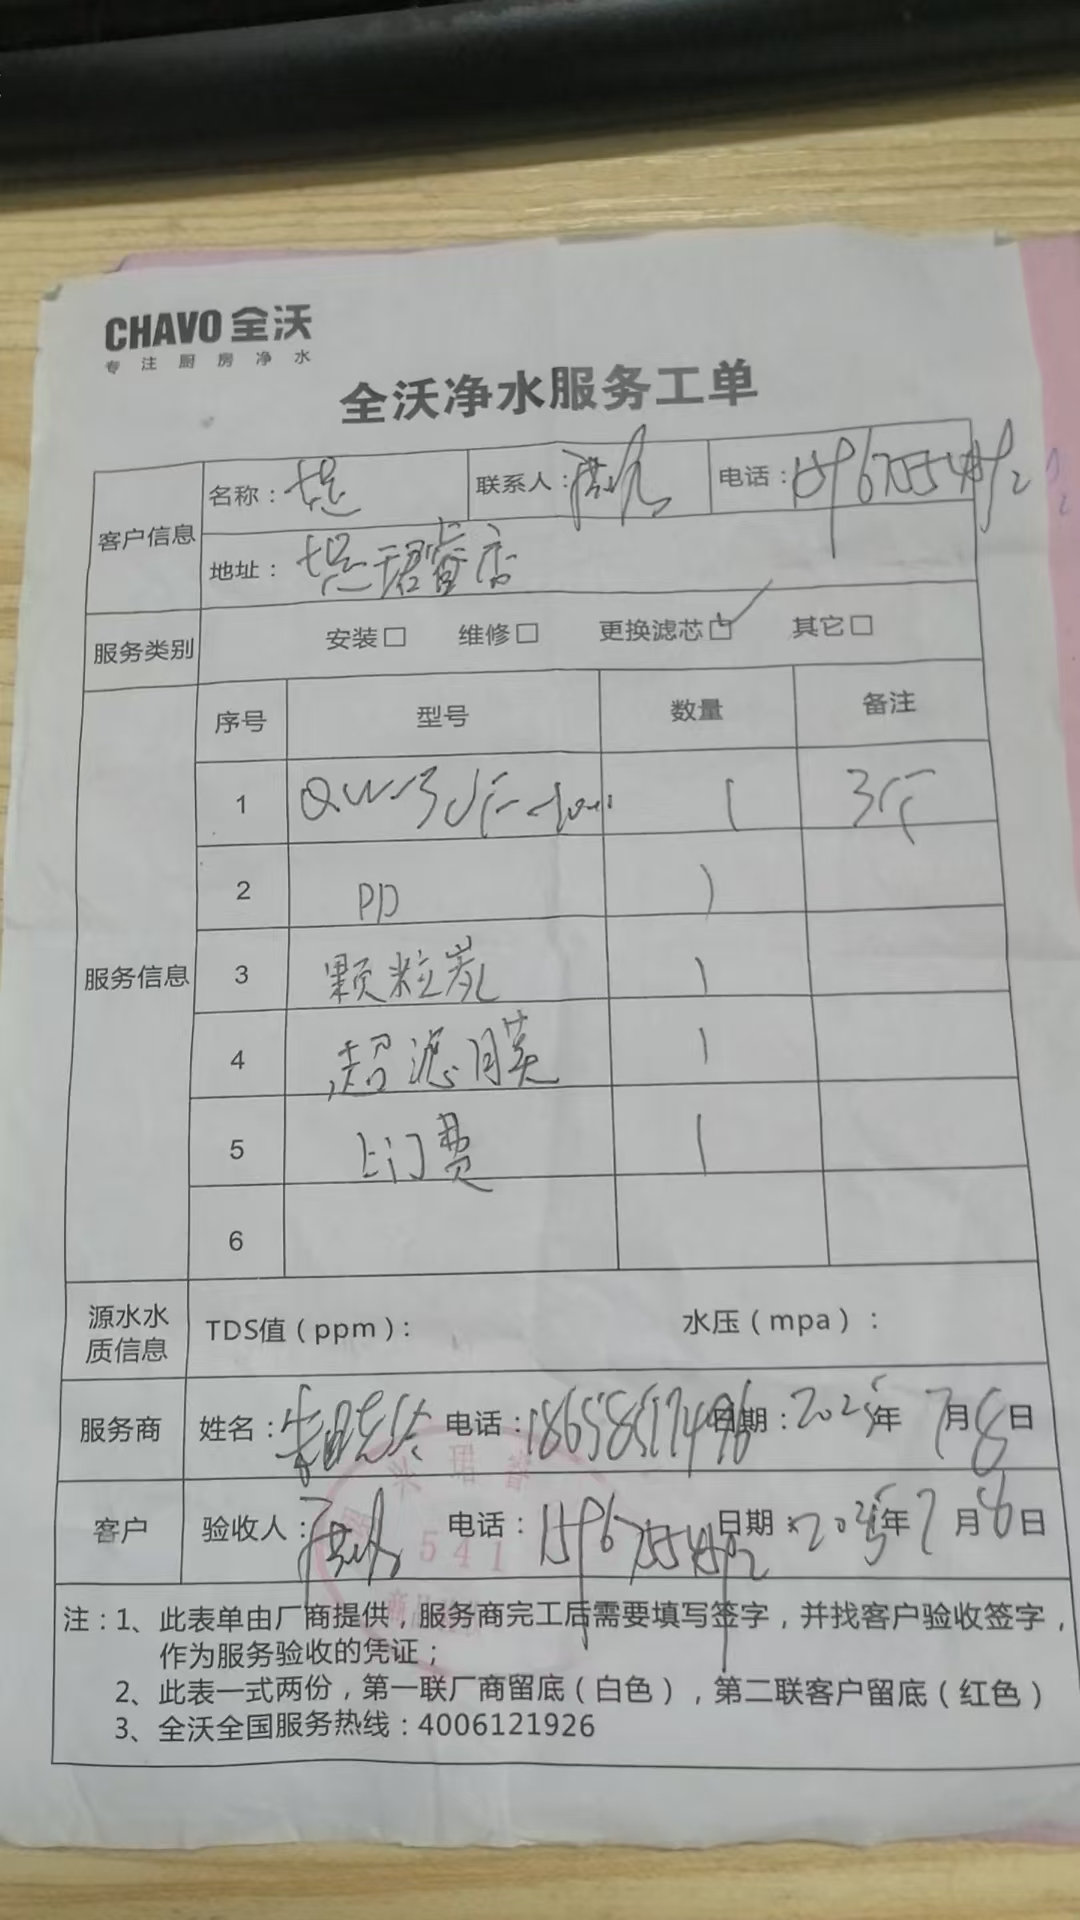 CHAVO 全沃
专注厨房净水
全沃净水服务工单
客户信息 名称： 联系人： 电话：
地址： 珺睿店
服务类别 安装□ 维修□ 更换滤芯□✓ 其它□
服务信息 序号 型号 数量 备注
1 1
2 PP 1
3 颗粒炭 1
4 超滤膜 1
5 上门费 1
6
源水水质信息 TDS值（ppm）： 水压（mpa）：
服务商 姓名： 电话： 日期：2025年7月8日
客户 验收人： 电话： 日期：2025年7月8日
541
注：1、此表单由厂商提供，服务商完工后需要填写签字，并找客户验收签字，
作为服务验收的凭证；
2、此表一式两份，第一联厂商留底（白色），第二联客户留底（红色）
3、全沃全国服务热线：4006121926